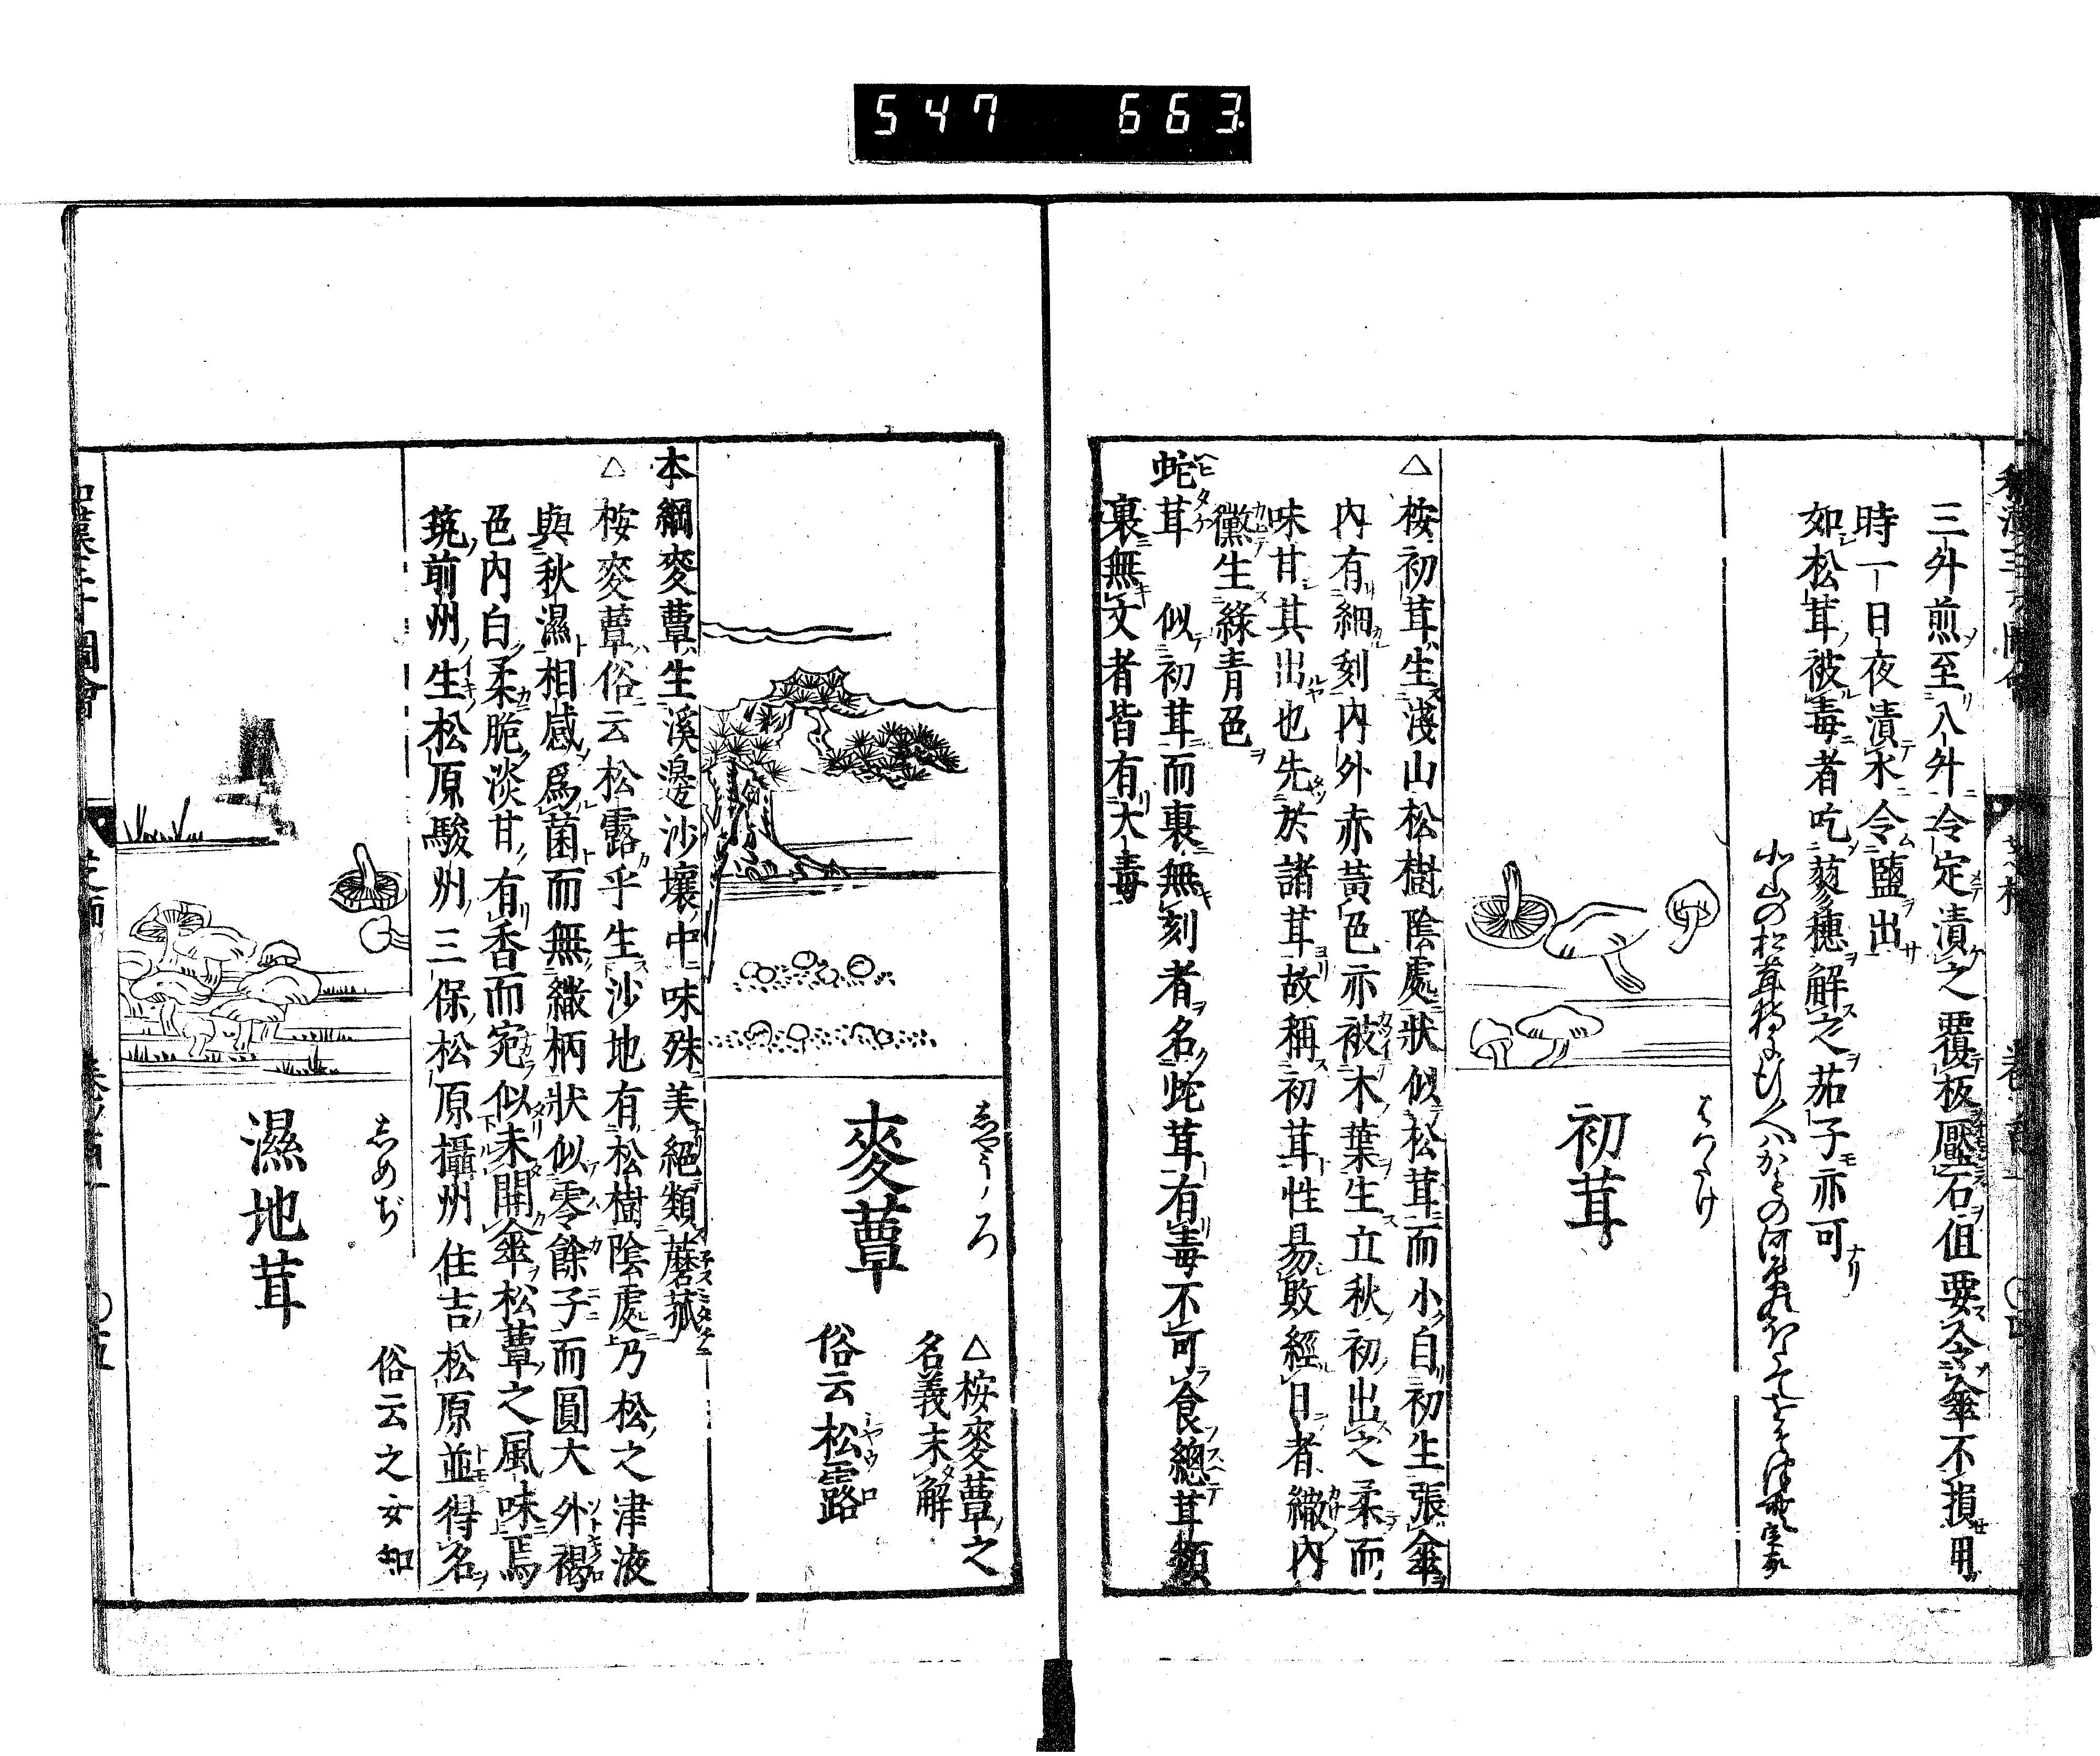 547 663
三外煎至八外令定漬之覆板壓石但要令傘不損用
時一日夜漬水令鹽出
如松茸被毒者吃蓼穗解之茄子亦可
初茸
△ 桉初茸生淺山松樹陰處狀似松茸而小自初生張傘
內有細刻內外赤黃色亦被木葉生立秋初出之柔而
味甘其出也先於諸茸故稱初茸性易敗經日者繖內
黴生綠青色
蛇茸 似初茸而裏無刻者名蛇茸有毒不可食總茸類
裏無文者皆有大毒
しやうろ
麥蕈
△桉麥蕈之
名義未解
俗云松露
本綱麥蕈生溪邊沙壤中味殊美絕類蘑菰
△ 桉麥蕈俗云松露乎生沙地有松樹陰處乃松之津液
與秋濕相感爲菌而無繖柄狀似零餘子而圓大外褐
色內白柔脆淡甘有香而宛似未開傘松蕈之風味焉
筑前州生松原駿州三保松原攝州住吉松原並得名
しめぢ
濕地茸
俗云之女知